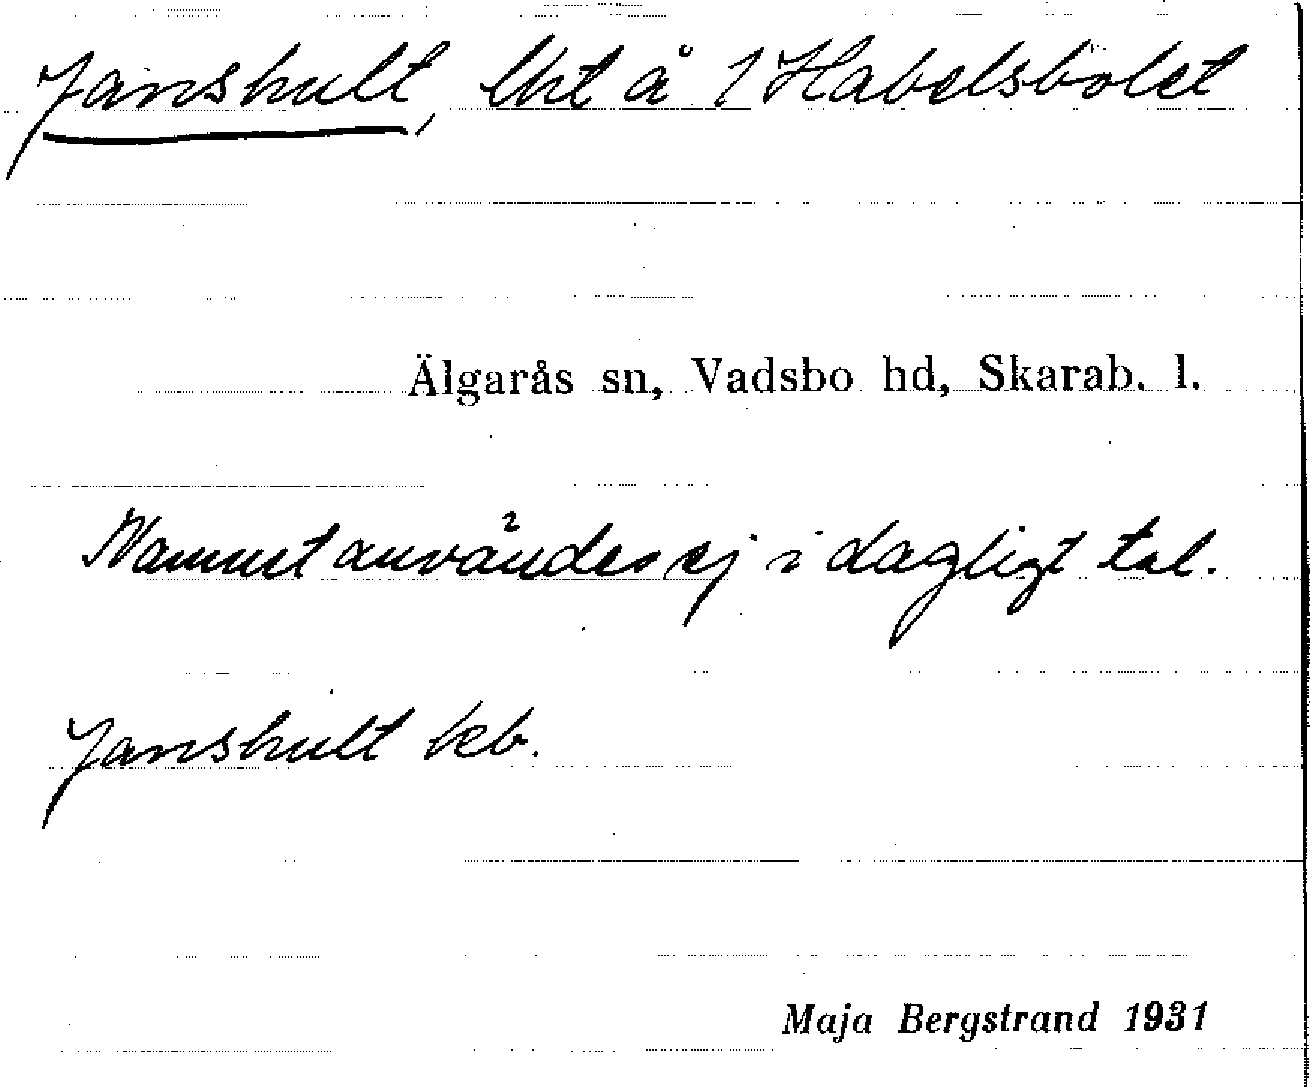 Janshult, lht å 1 Habelsbolet
Älgarås sn, Vadsbo hd, Skarab. l.
Namnet användes ej i dagligt tal.
Janshult keb.
Maja Bergstrand 1931